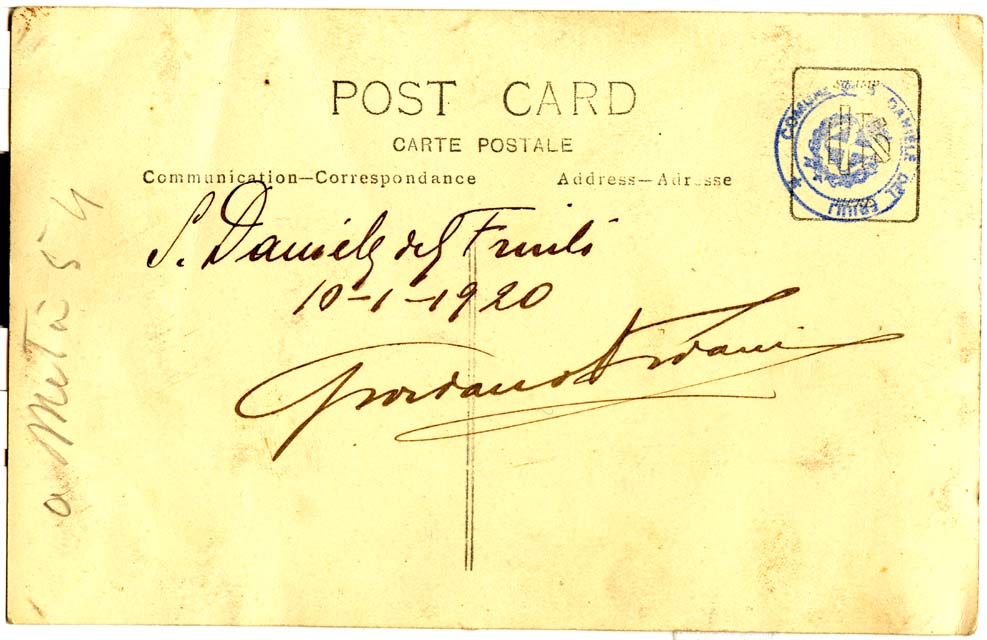 POST CARD
CARTE POSTALE
Communication—Correspondance
Address—Adresse
COMUNE DI S. DANIELE DEL FRIULI
S. Daniele del Friuli
10-1-1920
Giordano
a metà 54